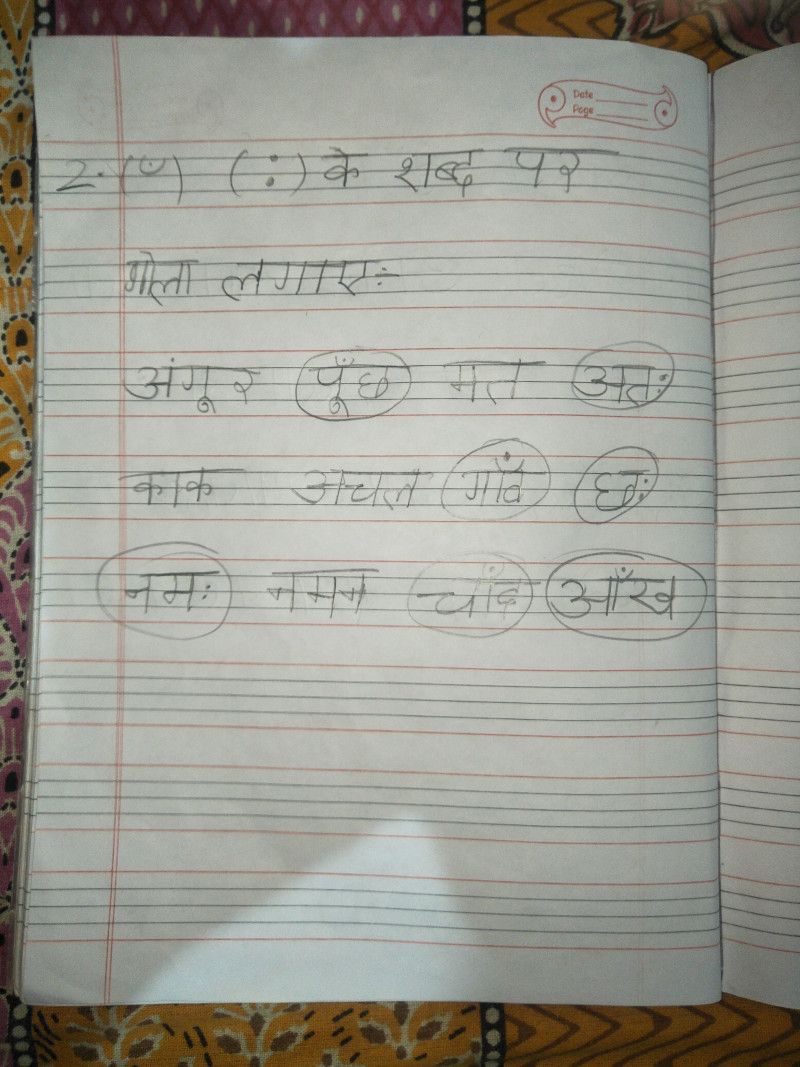 Date
Page
2. (ँ) (ः) के शब्द पर
गोला लगाए:-
अंगूर पूँछ मत अतः
काक अचल गाँव छः
नमः नमन चांद आँख